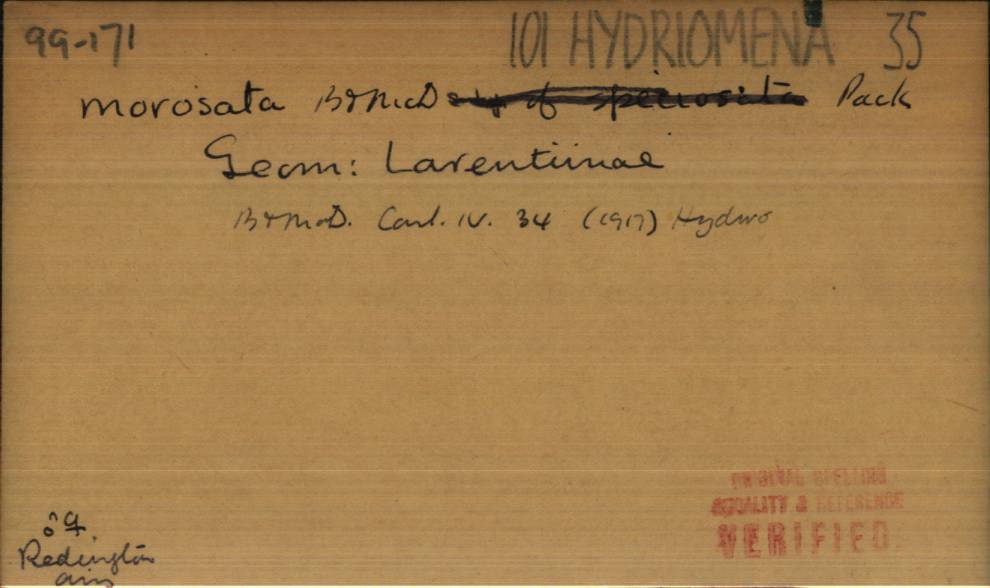 99-171 101 HYDRIOMENA 35
morosata B&McD syn of speciosata Pack
Geom: Larentiinae
B&McD. Cont. IV. 34 (1917) Hydrio
♂♀
Redington
Ariz
ORIGINAL SPELLING
LOCALITY & REFERENCE
VERIFIED